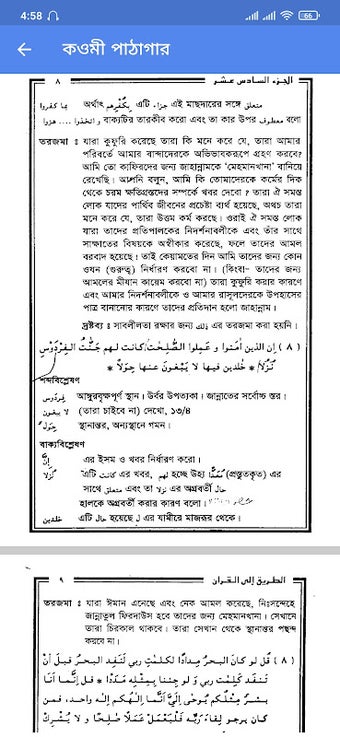 4:58
66
কওমী পাঠাগার
٨ الجزء السادس عشر
بما كفروا অর্থাৎ بكفرهم এটি جزاء এই মাছদারের সঙ্গে متعلق
واتخذوا .... هزوا বাক্যটির তারকীব করো এবং তা কার উপর معطوف বলো
তরজমা : যারা কুফুরি করেছে তারা কি মনে করে যে, তারা আমার
পরিবর্তে আমার বান্দাদেরকে অভিভাবকরূপে গ্রহণ করবে?
আমি তো কাফিরদের জন্য জাহান্নামকে ‘মেহমানখানা’ বানিয়ে
রেখেছি। আপনি বলুন, আমি কি তোমাদেরকে কর্মের দিক
থেকে চরম ক্ষতিগ্রস্তদের সম্পর্কে খবর দেবো ? তারা ঐ সমস্ত
লোক যাদের পার্থিব জীবনের প্রচেষ্টা ব্যর্থ হয়েছে, অথচ তারা
মনে করে যে, তারা উত্তম কর্ম করছে। ওরাই ঐ সমস্ত লোক
যারা তাদের প্রতিপালকের নিদর্শনাবলীকে এবং তাঁর সাথে
সাক্ষাতের বিষয়কে অস্বীকার করেছে, ফলে তাদের আমল
বরবাদ হয়েছে। তাই কেয়ামতের দিন আমি তাদের জন্য কোন
ওযন (গুরুত্ব) নির্ধারণ করবো না। (কিংবা- তাদের জন্য
আমলের মীযান কায়েম করবো না) তারা কুফুরি করার কারণে
এবং আমার নিদর্শনাবলীকে ও আমার রাসূলদেরকে উপহাসের
পাত্র বানানোর কারণে তাদের প্রতিদান হলো জাহান্নাম।
দ্রষ্টব্য : সাবলীলতা রক্ষার জন্য ذلك এর তরজমা করা হয়নি।
( ٨ ) إن الذين أمنوا و عملوا الصلحت كانت لهم جنت الفردوس
نزلا * خلدين فيها لا يبغون عنها حولا *
শব্দবিশ্লেষণ
فردوس আঙ্গুরবৃক্ষপূর্ণ স্থান। উর্বর উপত্যকা। জান্নাতের সর্বোচ্চ স্তর।
لا يبغون (তারা চাইবে না) দেখো, ১৩/৪
حول স্থানান্তর, অন্যস্থানে গমন।
বাক্যবিশ্লেষণ
إن এর ইসম ও খবর নির্ধারণ করো।
نزلا এটি كانت এর খবর, لهم হচ্ছে উহ্য معدا (প্রস্তুতকৃত) এর
সাথে متعلق এবং তা نزلا এর অগ্রবর্তী حال
হালকে অগ্রবর্তী করার কারণ বলো।
خلدين এটি حال হয়েছে ل এর যামীরে মাজরূর থেকে।
٩ الطريق إلى القران
তরজমা : যারা ঈমান এনেছে এবং নেক আমল করেছে, নিঃসন্দেহে
জান্নাতুল ফিরদাউস হবে তাদের জন্য মেহমানখানা। সেখানে
তারা চিরকাল থাকবে। তারা সেখান থেকে স্থানান্তর পছন্দ
করবে না।
( ٨ ) قل لو كان البحر مدادا لكلمت ربي لنفد البحر قبل أن
تنفد كلمت ربي و لو جئنا بمثله مددا * قل إنما أنا
بشر مثلكم يوحى إلي أنما إلهكم إله واحد، فمن
كان يرجو لقاء ربه فليعمل عملا صلحا و لا يشرك